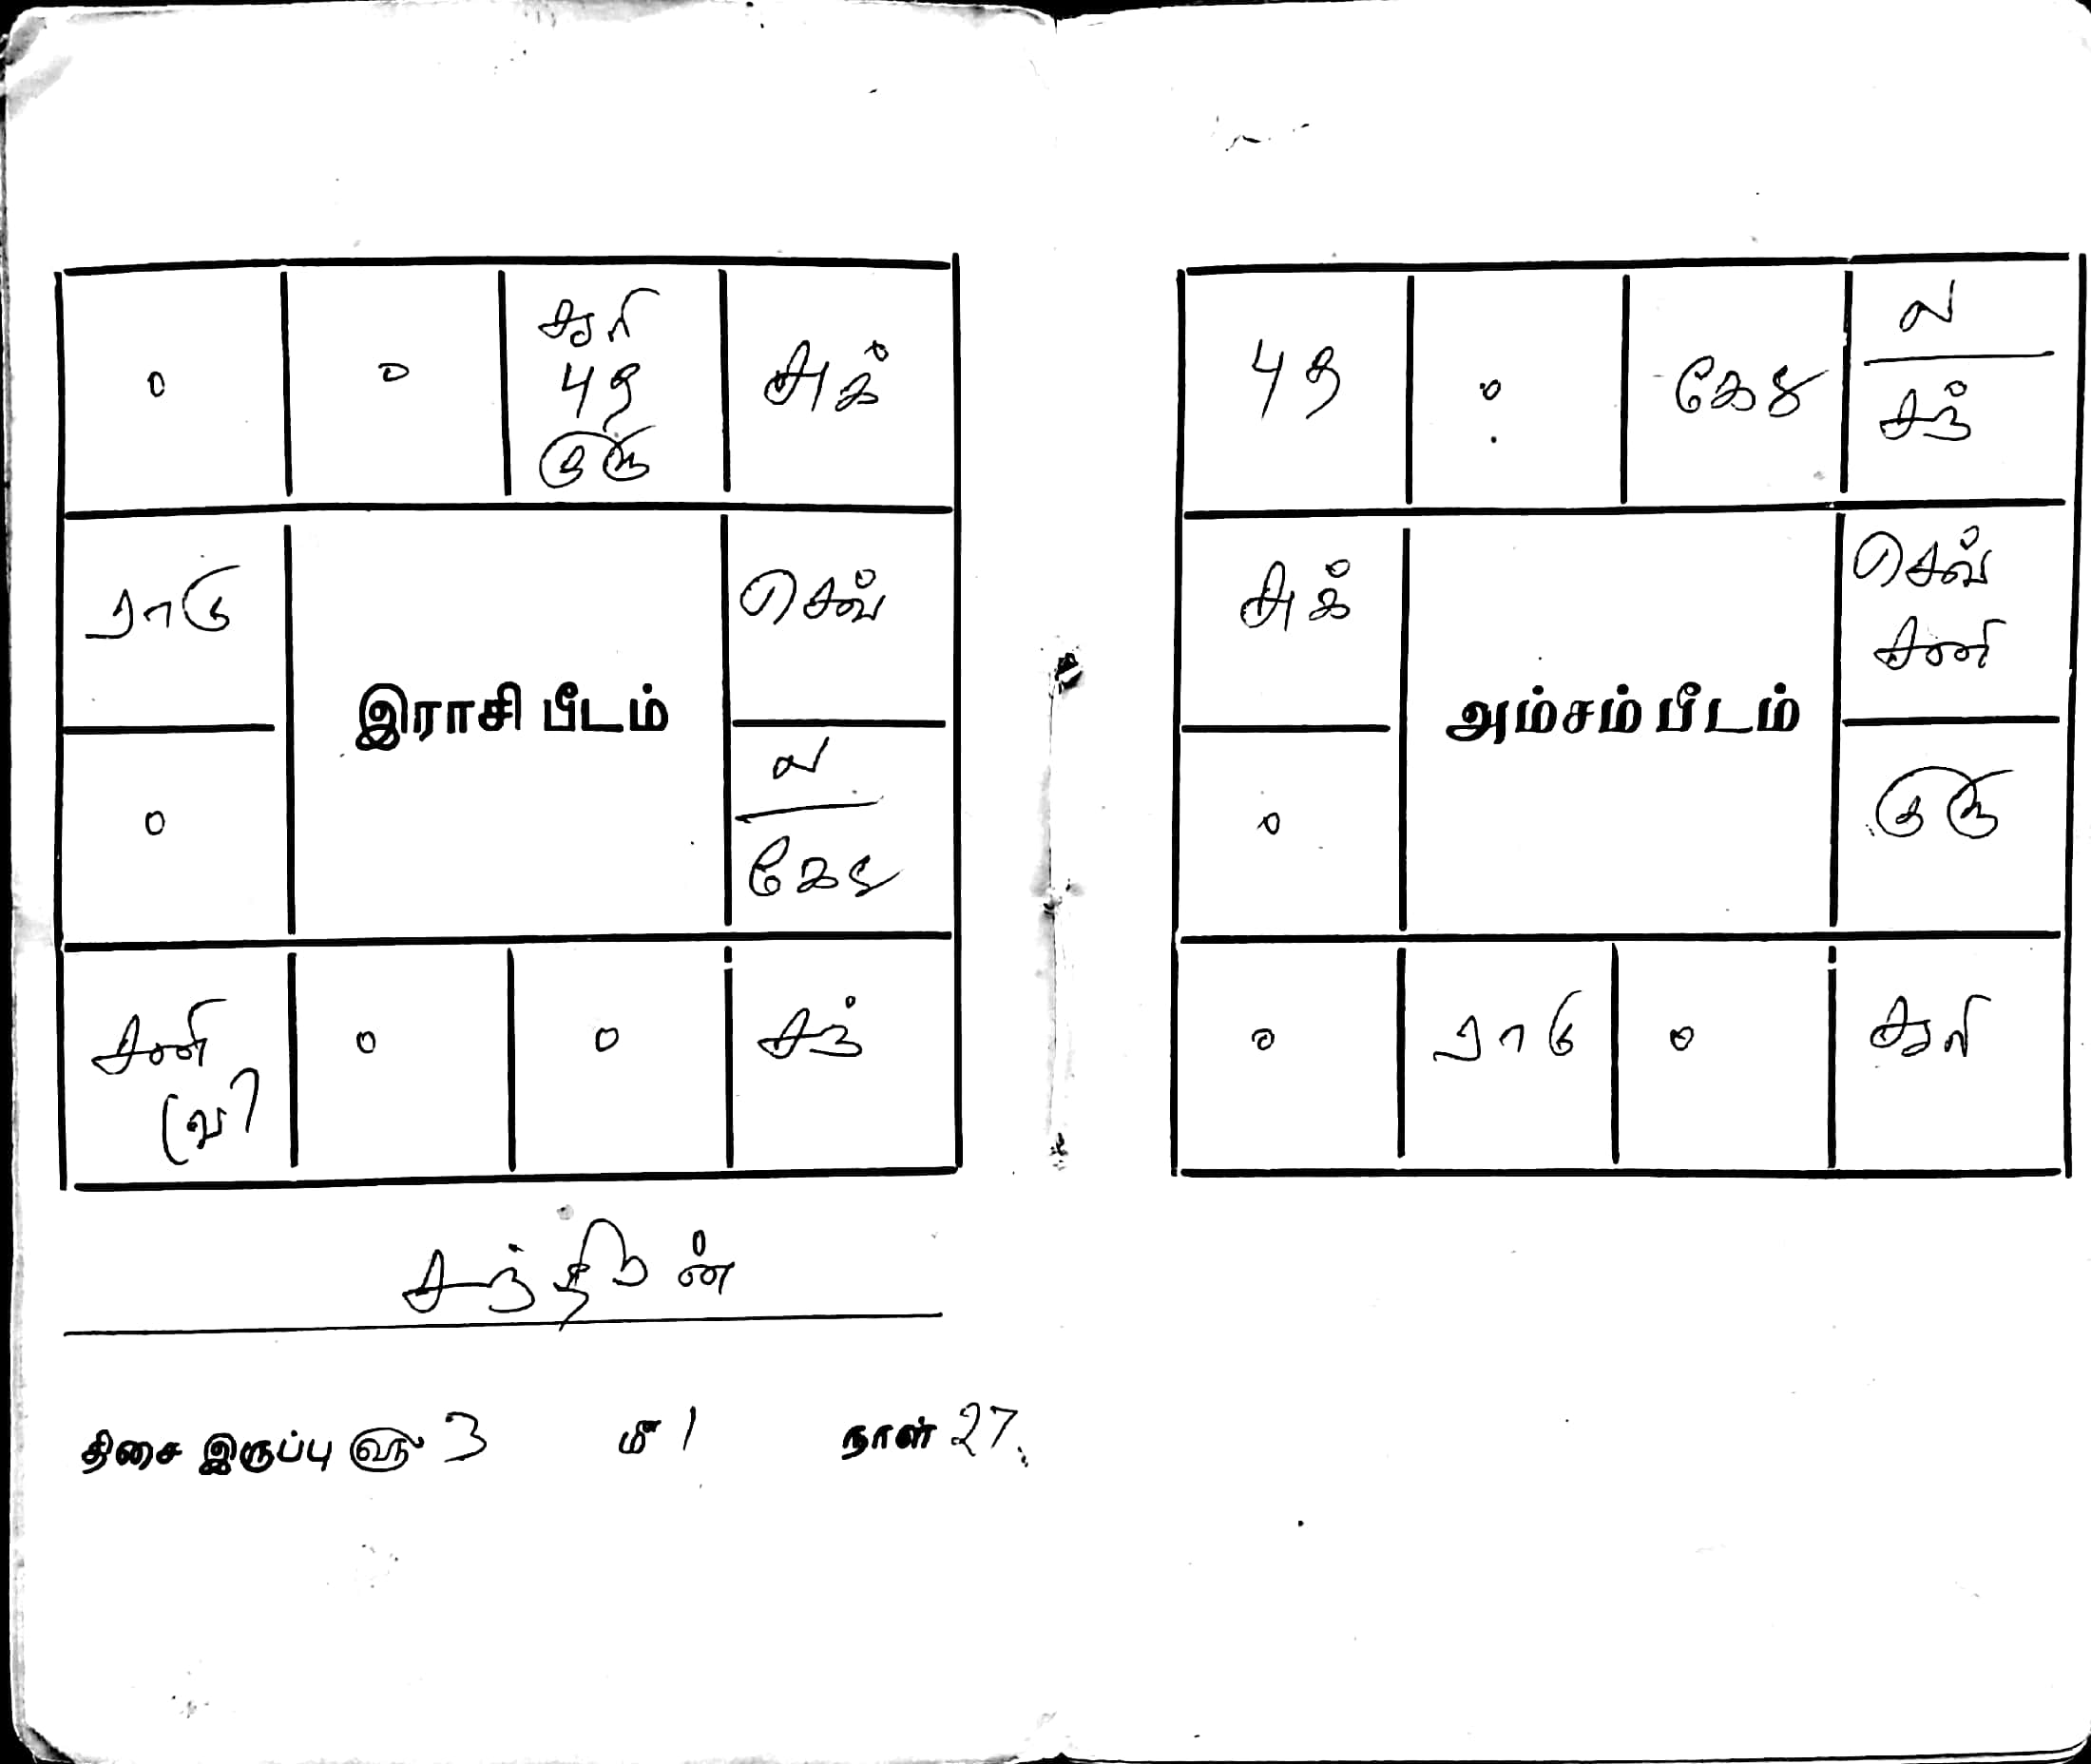 0
0
சூரி
புத
குரு
சுக்
ராகு
இராசி பீடம்
செவ்
0
ல
கேது
சனி
(வ)
0
0
சந்
புத
0
கேது
ல
சந்
சுக்
அம்சம் பீடம்
செவ்
சனி
0
குரு
0
ராகு
0
சூரி
சந்திரன்
திசை இருப்பு வரு 3 மீ 1 நாள் 27